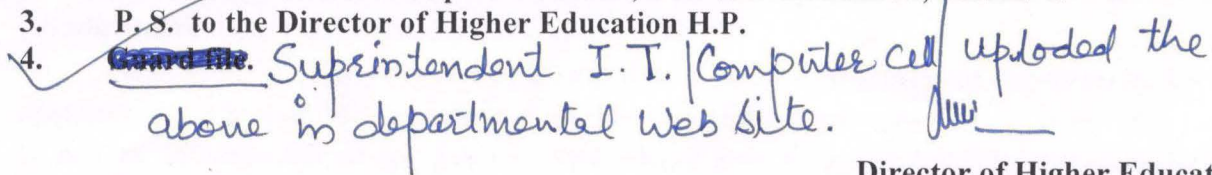 3. P. S. to the Director of Higher Education H.P.
4. Guard file. Suprintendent I.T. / Computer cell uploded the
above in departmental Web Site.
Director of Higher Educat